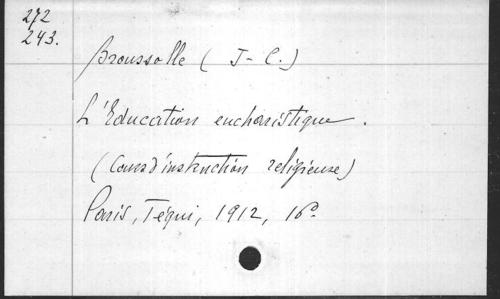 272
243.
Broussolle ( J-C.)
L'Education eucharistique.
(Cours d'instruction religieuse)
Paris, Téqui, 1912, 16°.